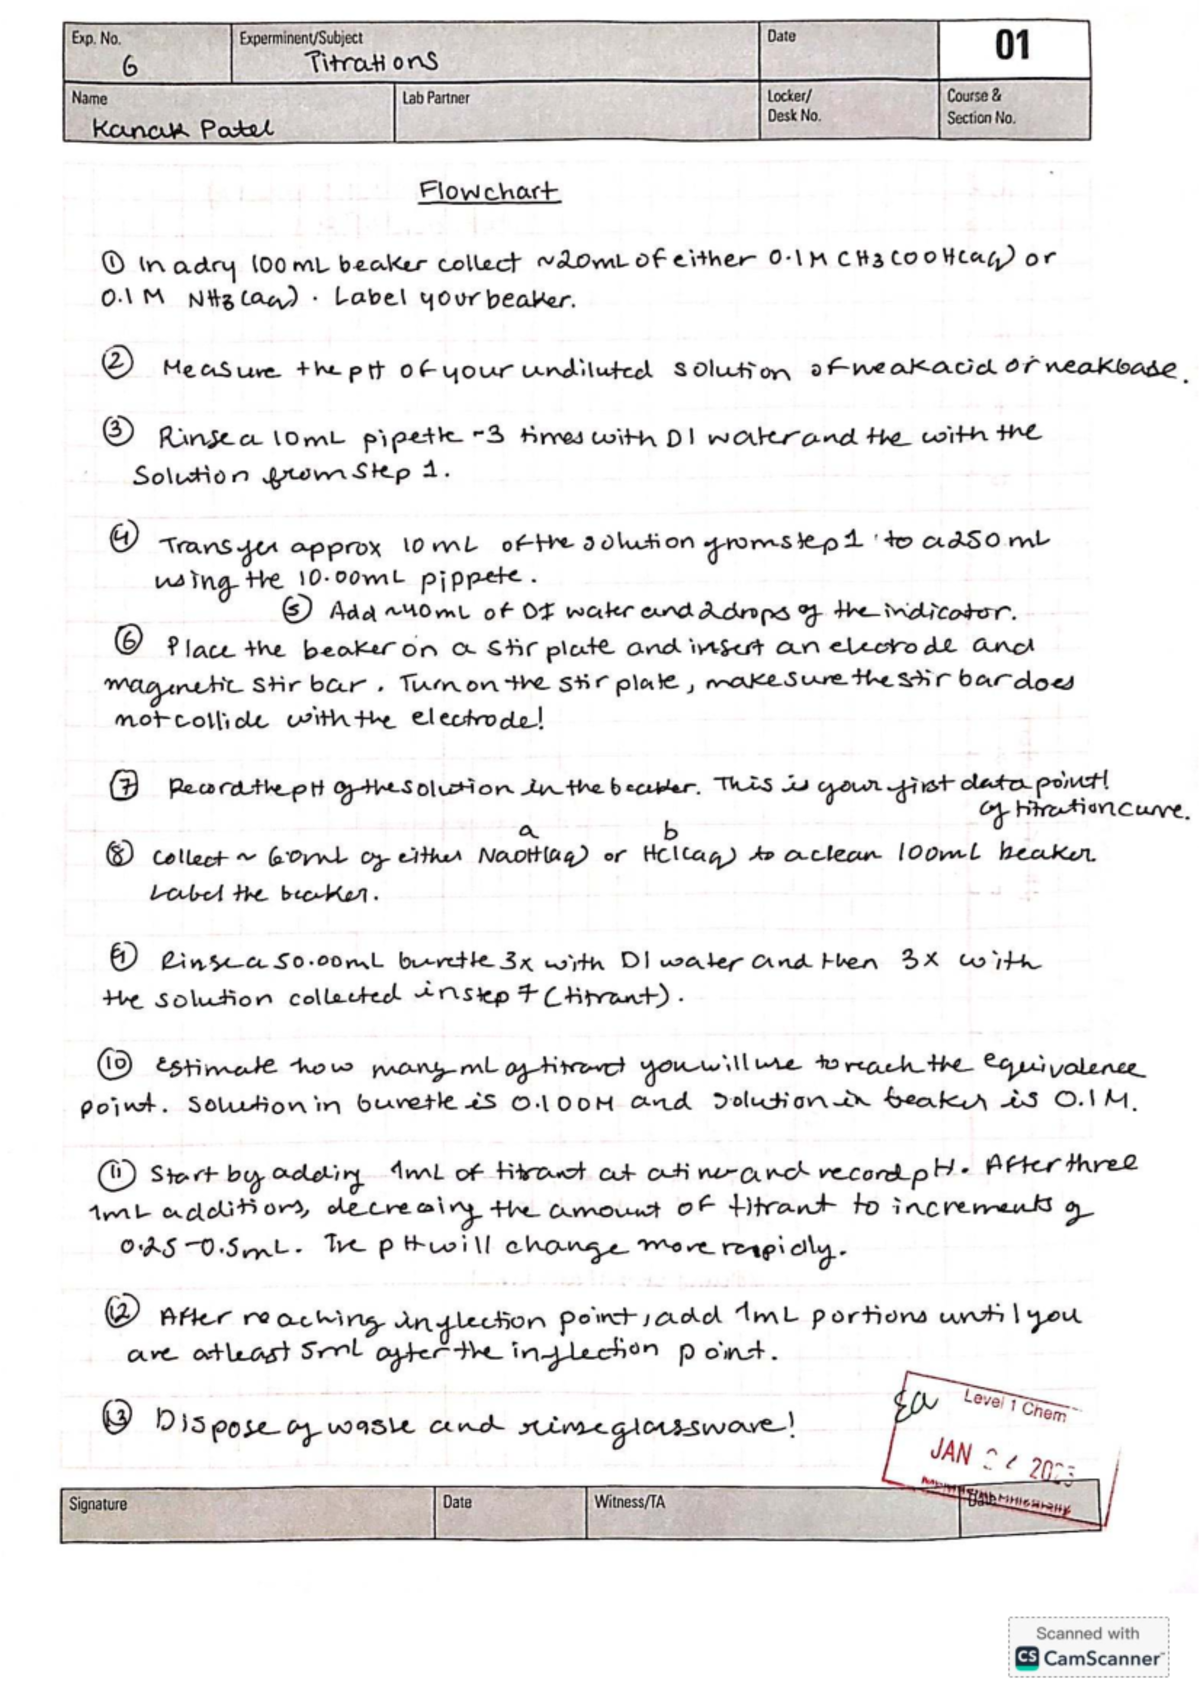 Exp. No.
6
Experminent/Subject
Titrations
Date
01
Name
Kanak Patel
Lab Partner
Locker/
Desk No.
Course &
Section No.
Flowchart
① In a dry 100 mL beaker collect ~20mL of either 0.1M CH3COOH(aq) or
0.1 M NH3(aq). Label your beaker.
② Measure the pH of your undiluted solution of weak acid or weak base.
③ Rinse a 10mL pipette ~3 times with DI water and the with the
Solution from Step 1.
④ Transfer approx 10 mL of the solution from step 1 to a 250 mL
using the 10.00mL pippete.
⑤ Add ~40mL of DI water and 2 drops of the indicator.
⑥ Place the beaker on a stir plate and insert an electrode and
magenetic stir bar. Turn on the stir plate, make sure the stir bar does
not collide with the electrode!
⑦ Record the pH of the solution in the beaker. This is your first data point!
of titration curve.
a b
⑧ Collect ~ 60mL of either NaOH(aq) or HCl(aq) to a clean 100mL beaker
Label the beaker.
⑨ Rinse a 50.00mL burette 3x with DI water and then 3x with
the solution collected in step 7 (titrant).
⑩ Estimate how many mL of titrant you will use to reach the equivalence
point. Solution in burette is 0.100M and solution in beaker is 0.1M.
⑪ Start by adding 1mL of titrant at a time and record pH. After three
1mL additions, decreasing the amount of titrant to increments of
0.25-0.5mL. The pH will change more rapidly.
⑫ After reaching inflection point, add 1mL portions until you
are atleast 5mL after the inflection point.
⑬ Dispose of waste and rinse glassware!
Level 1 Chem
JAN
Signature
Date
Witness/TA
Date
Scanned with
CS CamScanner